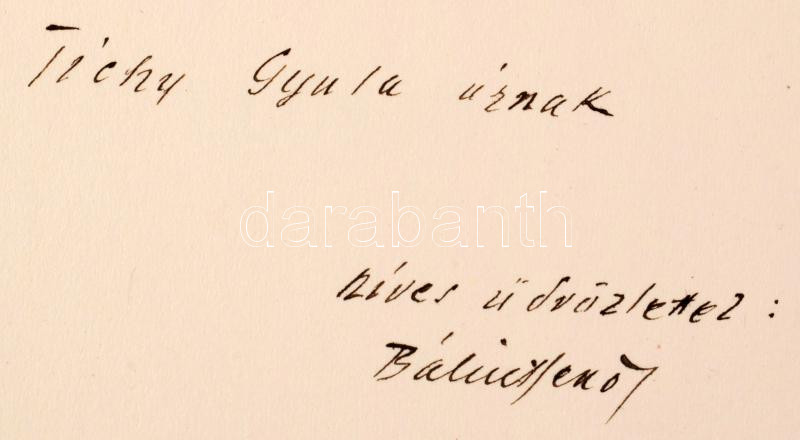 Tichy Gyula úrnak
darabanth
szíves üdvözlettel:
Bálint Jenő